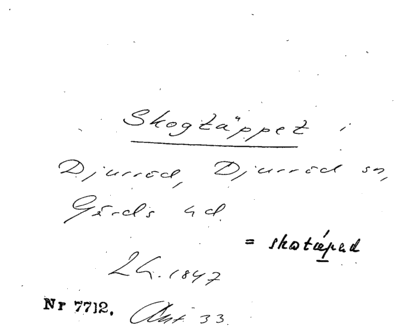 Skogtäppet i
Djurröd, Djurröd sn,
Gärds hd.
= skotäped
LH. 1847
Nr 7712. Akt 33.